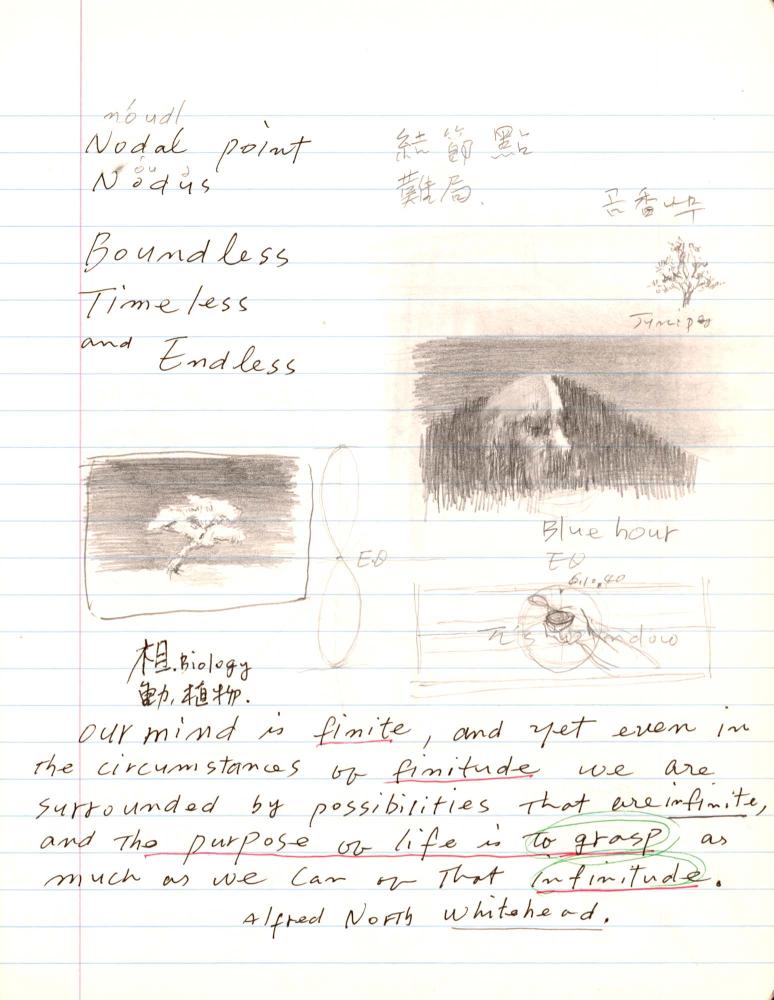 nóudl
Nodal point 結節點
Nodus 難局.
Boundless
Timeless
and Endless
Juniper
Blue hour
Eθ
6.10.40
Eθ
植.Biology
動,植物.
our mind is finite, and yet even in
the circumstances of finitude we are
surrounded by possibilities that are infinite,
and the purpose of life is to grasp as
much as we can of that infinitude.
Alfred North Whitehead.